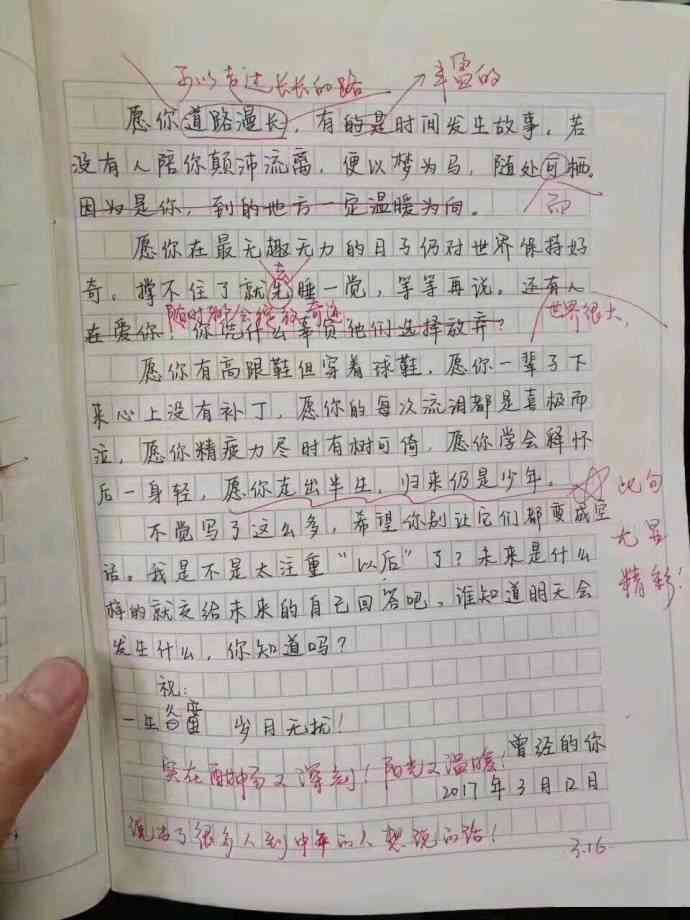 可以走过长长的路
丰富的
愿你道路漫长，有的是时间发生故事。若
没有人陪你颠沛流离，便以梦为马，随处可栖。
因为是你，到的地方一定温暖为向。
而
愿你在最无趣无力的日子仍对世界保持好
去
奇。撑不住了就先睡一觉，等等再说。还有人
随时都会绽放奇迹
世界很大，
在爱你，你凭什么辜负他们选择放弃？
愿你有高跟鞋但穿着球鞋，愿你一辈子下
来心上没有补丁，愿你的每次流泪都是喜极而
泣，愿你精疲力尽时有树可倚，愿你学会释怀
后一身轻，愿你走出半生，归来仍是少年。
此句
尤显
精彩！
不觉写了这么多，希望你别让它们都变成空
话。我是不是太注重“以后”了？未来是什么
样的就交给未来的自己回答吧，谁知道明天会
发生什么，你知道吗？
祝：
一生 岁月无扰！
曾经的你
实在 而又深刻！阳光又温暖！
2017年3月12日
说出了很多人到中年的人想说的话！
3.16